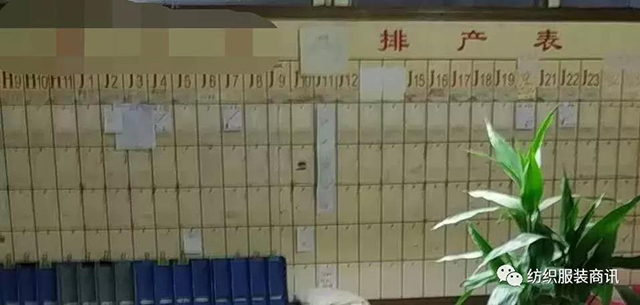 排产表
H9 H10 H11 J1 J2 J3 J4 J5 J6 J7 J8 J9 J10 J11 J12 J15 J16 J17 J18 J19 J21 J22 J23
纺织服装商讯